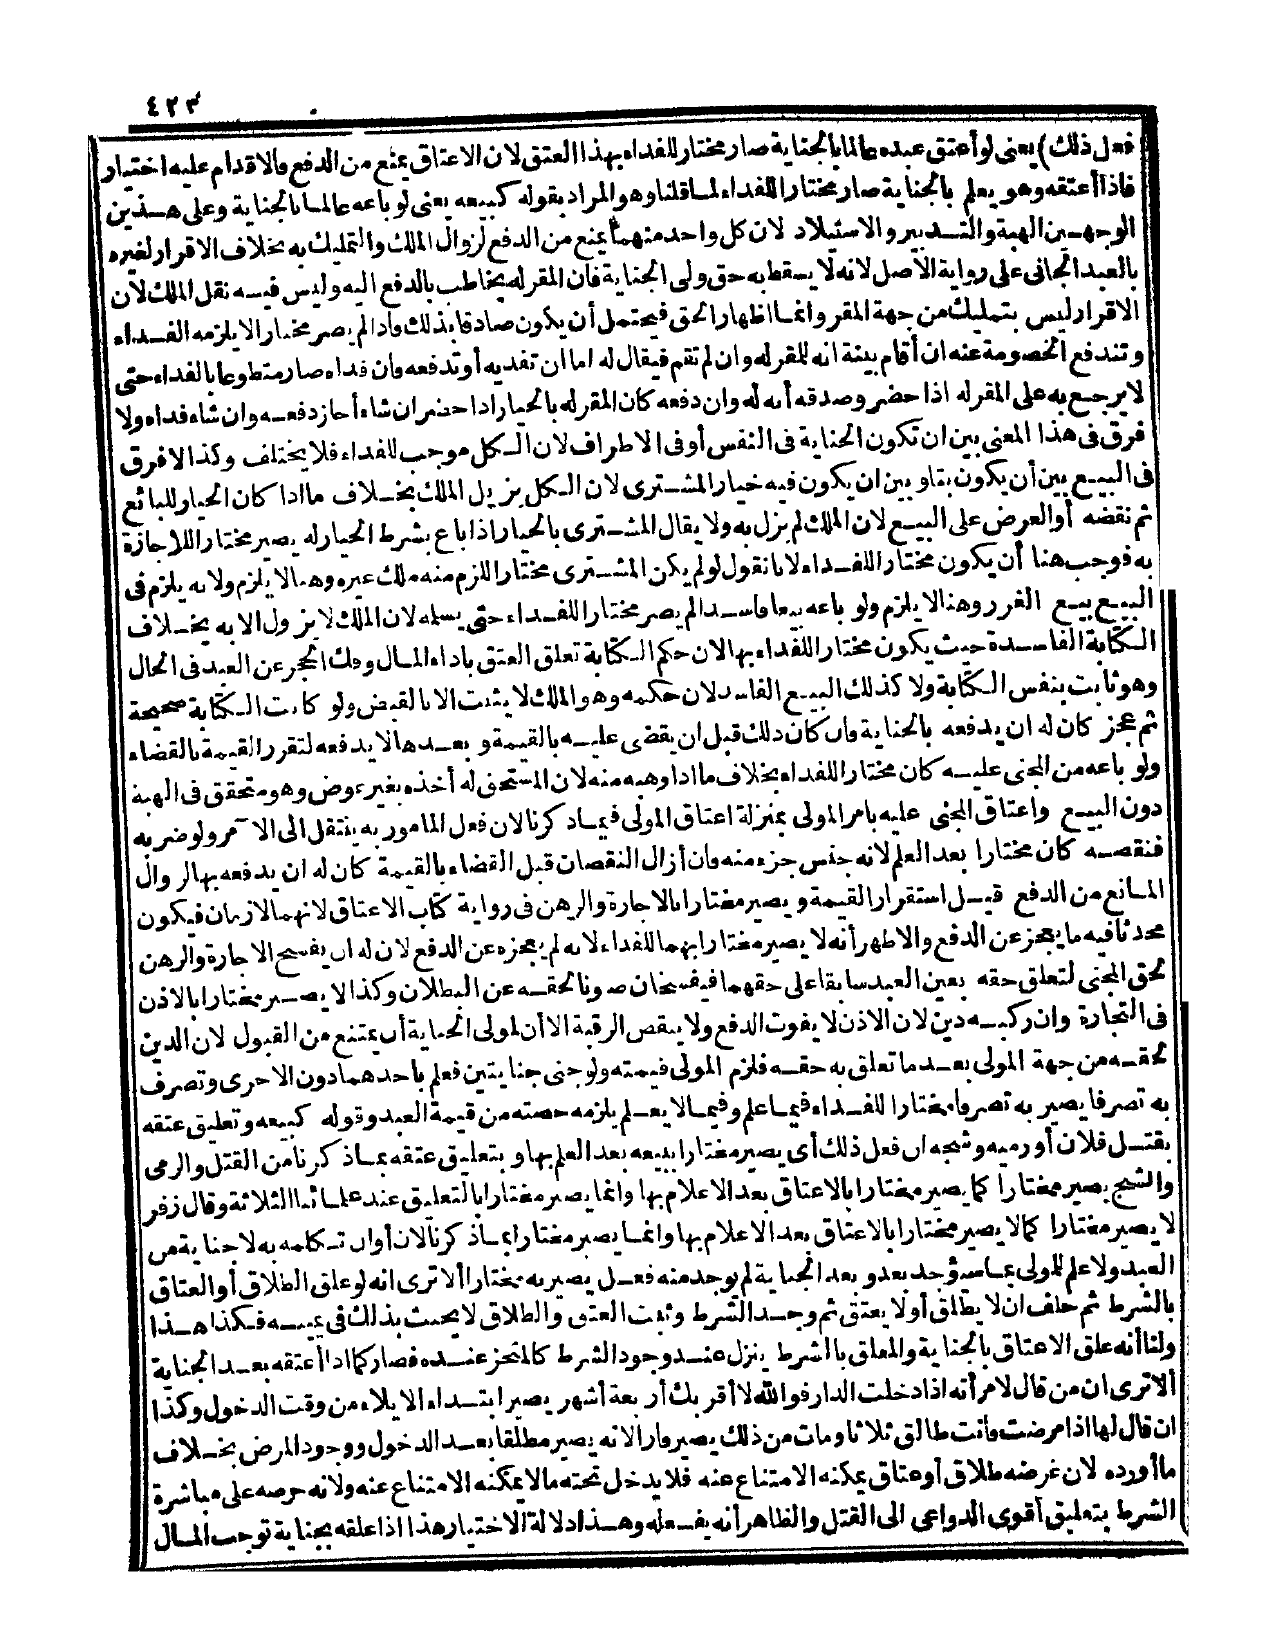 ٤٢٣
فعل ذلك) يعنى لو أعتق عبده عالما بالجناية صار مختارا للفداء بهذا العتق لان الاعتاق يمنع من الدفع فالاقدام عليه اختيار
فاذا أعتقه وهو يعلم بالجناية صار مختارا للفداء لما قلنا وهو المراد بقوله كبيعه يعنى لو باعه عالما بالجناية وعلى هذين
الوجهين الهبة والتدبير والاستيلاد لان كل واحد منهما يمنع من الدفع لزوال الملك والتمليك به بخلاف الاقرار لغيره
بالعبد الجانى على رواية الاصل لانه لا يسقط به حق ولى الجناية فان المقر له يخاطب بالدفع اليه وليس فيه نقل الملك لان
الاقرار ليس بتمليك من جهة المقر وانما اظهار الحق فيحتمل أن يكون صادقا بذلك فاذا لم يصر مختارا لا يلزمه الفداء
وتندفع الخصومة عنه ان أقام بينة انه للمقر له وان لم تقم فيقال له اما ان تفديه أو تدفعه فان فداه صار متطوعا بالفداء حتى
لا يرجع به على المقر له اذا حضر وصدقه أنه له وان دفعه كان المقر له بالخيار اذا حضر ان شاء أجاز دفعه وان شاء فداه ولا
فرق فى هذا المعنى بين ان تكون الجناية فى النفس أو فى الاطراف لان الكل موجب للفداء فلا يختلف وكذا لا فرق
فى البيع بين أن يكون بتا وبين ان يكون فيه خيار المشترى لان الكل يزيل الملك بخلاف ما اذا كان الخيار للبائع
ثم نقضه أو العرض على البيع لان الملك لم يزل به ولا يقال المشترى بالخيار اذا باع بشرط الخيار له يصير مختارا للاجازة
به فوجب هنا أن يكون مختارا للفداء لانا نقول لو لم يكن المشترى مختارا للزم منه ملك غيره وهنا لا يلزم ولانه يلزم فى
البيع بيع الغرر وهنا لا يلزم ولو باعه بيعا فاسدا لم يصر مختارا للفداء حتى يسلمه لان الملك لا يزول الا به بخلاف
الكتابة الفاسدة حيث يكون مختارا للفداء بها لان حكم الكتابة تعلق العتق باداء المال وفك الحجر عن العبد فى الحال
وهو ثابت بنفس الكتابة ولا كذلك البيع الفاسد لان حكمه وهو الملك لا يثبت الا بالقبض ولو كانت الكتابة صحيحة
ثم عجز كان له ان يدفعه بالجناية فان كان ذلك قبل ان يقضى عليه بالقيمة وبعدها لا يدفعه لتقرر القيمة بالقضاء
ولو باعه من المجنى عليه كان مختارا للفداء بخلاف ما اذا وهبه منه لان المستحق له أخذه بغير عوض وهو متحقق فى الهبة
دون البيع واعتاق المجنى عليه بامر المولى بمنزلة اعتاق المولى فيما ذكرنا لان فعل المأمور به ينتقل الى الآمر ولو ضربه
فنقصه كان مختارا بعد العلم لانه حبس جزء منه فان أزال النقصان قبل القضاء بالقيمة كان له ان يدفعه بها لزوال
المانع من الدفع قبل استقرار القيمة ويصير مختارا بالاجارة والرهن فى رواية كتاب الاعتاق لانهما لازمان فيكون
محدثا فيه ما يعجز عن الدفع والاظهر أنه لا يصير مختارا بهما للفداء لانه لم يعجزه عن الدفع لان له ان يفسخ الاجارة والرهن
لحق المجنى لتعلق حقه بعين العبد سابقا على حقهما فيفسخان صونا لحقه عن البطلان وكذا لا يصير مختارا بالاذن
فى التجارة وان ركبه دين لان الاذن لا يفوت الدفع ولا ينقص الرقبة الا أن لمولى الجناية أن يمتنع من القبول لان الدين
لحقه من جهة المولى بعد ما تعلق به حقه فلزم المولى قيمته ولو جنى جنايتين فعلم باحدهما دون الاخرى وتصرف
به تصرفا يصير به تصرفا مختارا للفداء فيما علم وفيما لا يعلم يلزمه حصته من قيمة العبد وقوله كبيعه وتعليق عتقه
بقتل فلان أو رميه وشجه ان فعل ذلك أى يصير مختارا ببيعه بعد العلم بها وبتعليق عتقه بما ذكرنا من القتل والرمى
والشج يصير مختارا كما يصير مختارا بالاعتاق بعد الاعلام بها وانما يصير مختارا بالتعليق عند علمائنا الثلاثة وقال زفر
لا يصير مختارا كما لا يصير مختارا بالاعتاق بعد الاعلام بها وانما يصير مختارا بما ذكرنا لان أوان تكلمه به لا جناية من
العبد ولا علم للمولى بما سيوجد بعد وبعد الجناية لم يوجد منه فعل يصير به مختارا ألا ترى انه لو علق الطلاق أو العتاق
بالشرط ثم حلف ان لا يطلق أو لا يعتق ثم وجد الشرط وثبت العتق والطلاق لا يحنث بذلك فى يمينه فكذا هذا
ولنا أنه علق الاعتاق بالجناية والمعلق بالشرط ينزل عند وجود الشرط كالمنجز عنده فصار كما اذا أعتقه بعد الجناية
ألا ترى ان من قال لامرأته اذا دخلت الدار فوالله لا أقربك أربعة أشهر يصير ابتداء الايلاء من وقت الدخول وكذا
ان قال لها اذا مرضت فأنت طالق ثلاثا ومات من ذلك يصير فارا لانه يصير مطلقا بعد الدخول ووجود المرض بخلاف
ما أورده لان غرضه طلاق أو عتاق يمكنه الامتناع عنه فلا يدخل تحته ما لا يمكنه الامتناع عنه ولانه حرصه على مباشرة
الشرط بتعليق أقوى الدواعى الى القتل والظاهر أنه يفعله وهذا دلالة الاختيار هذا اذا علقه بجناية توجب المال